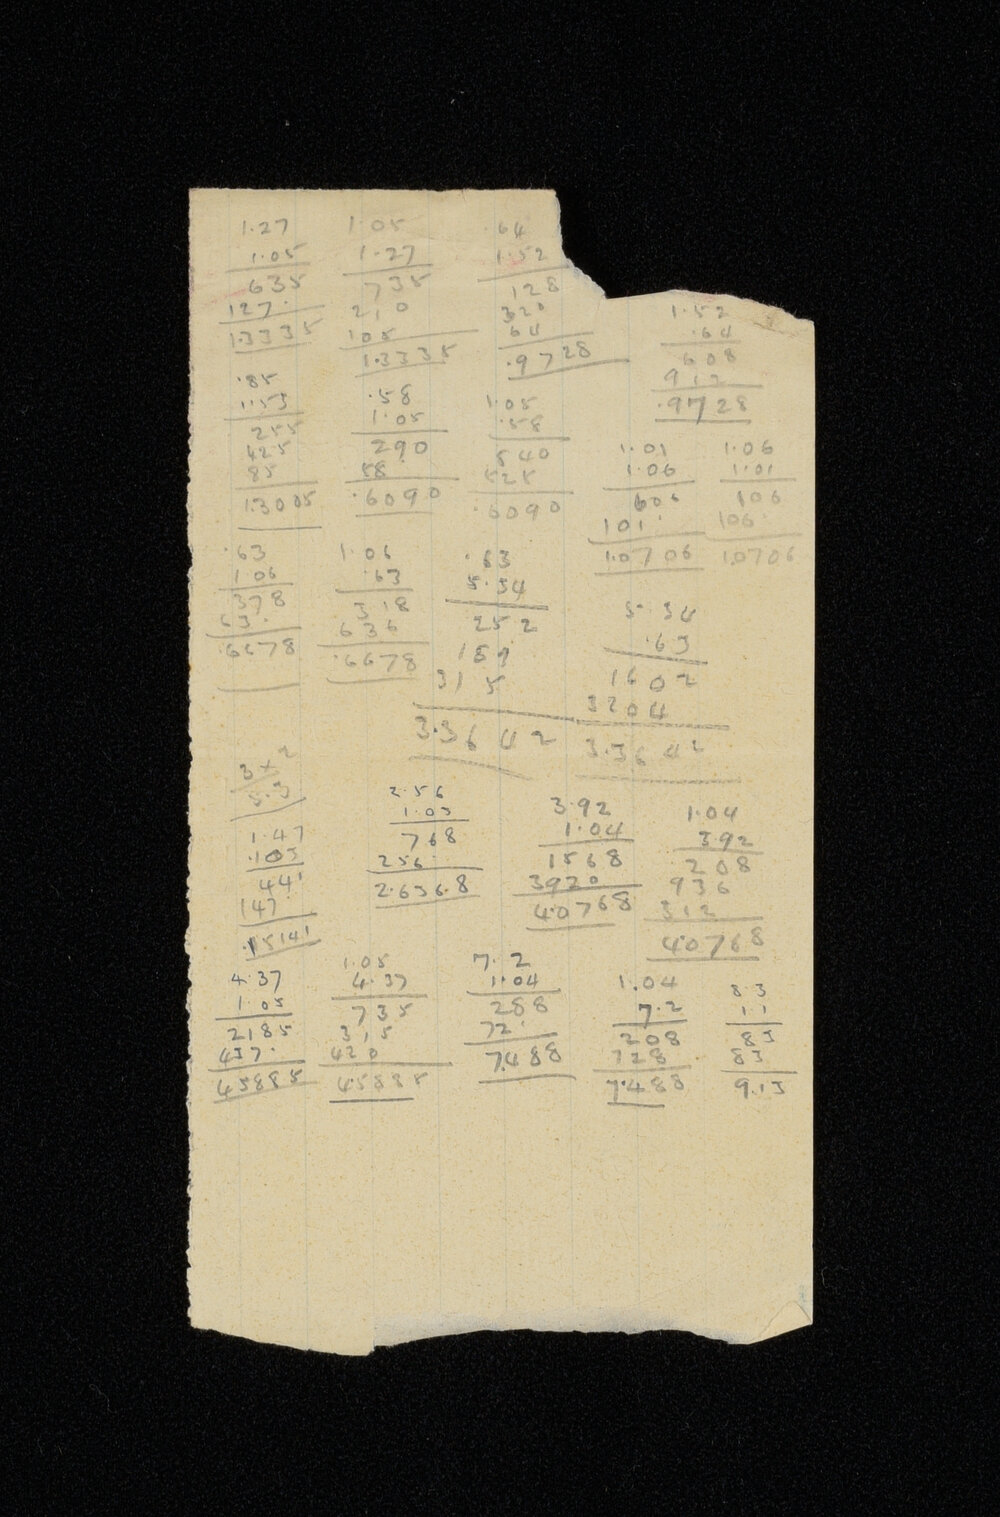 1.27
1.05
635
127.
1.3335
1.05
1.27
735
210
105
1.3335
.64
1.52
128
320
64
.9728
1.52
.64
608
912
.9728
.85
1.53
255
425
85
1.3005
.58
1.05
290
58.
.6090
1.05
.58
840
525
.6090
1.01
1.06
606
101.
1.0706
1.06
1.01
106
106.
1.0706
.63
1.06
378
63.
.6678
1.06
.63
318
636
.6678
.63
5.34
252
189
315
3.3642
5.34
.63
1602
3204
3.3642
3 x 2
5.3
1.47
.103
441
147
.15141
2.56
1.03
768
256.
2.6368
3.92
1.04
1568
3920
4.0768
1.04
3.92
208
936
312
4.0768
4.37
1.05
2185
437.
4.5885
1.05
4.37
735
315
420
4.5885
7.2
1.04
288
72.
7.488
1.04
7.2
208
728
7.488
83
11
83
83
9.13